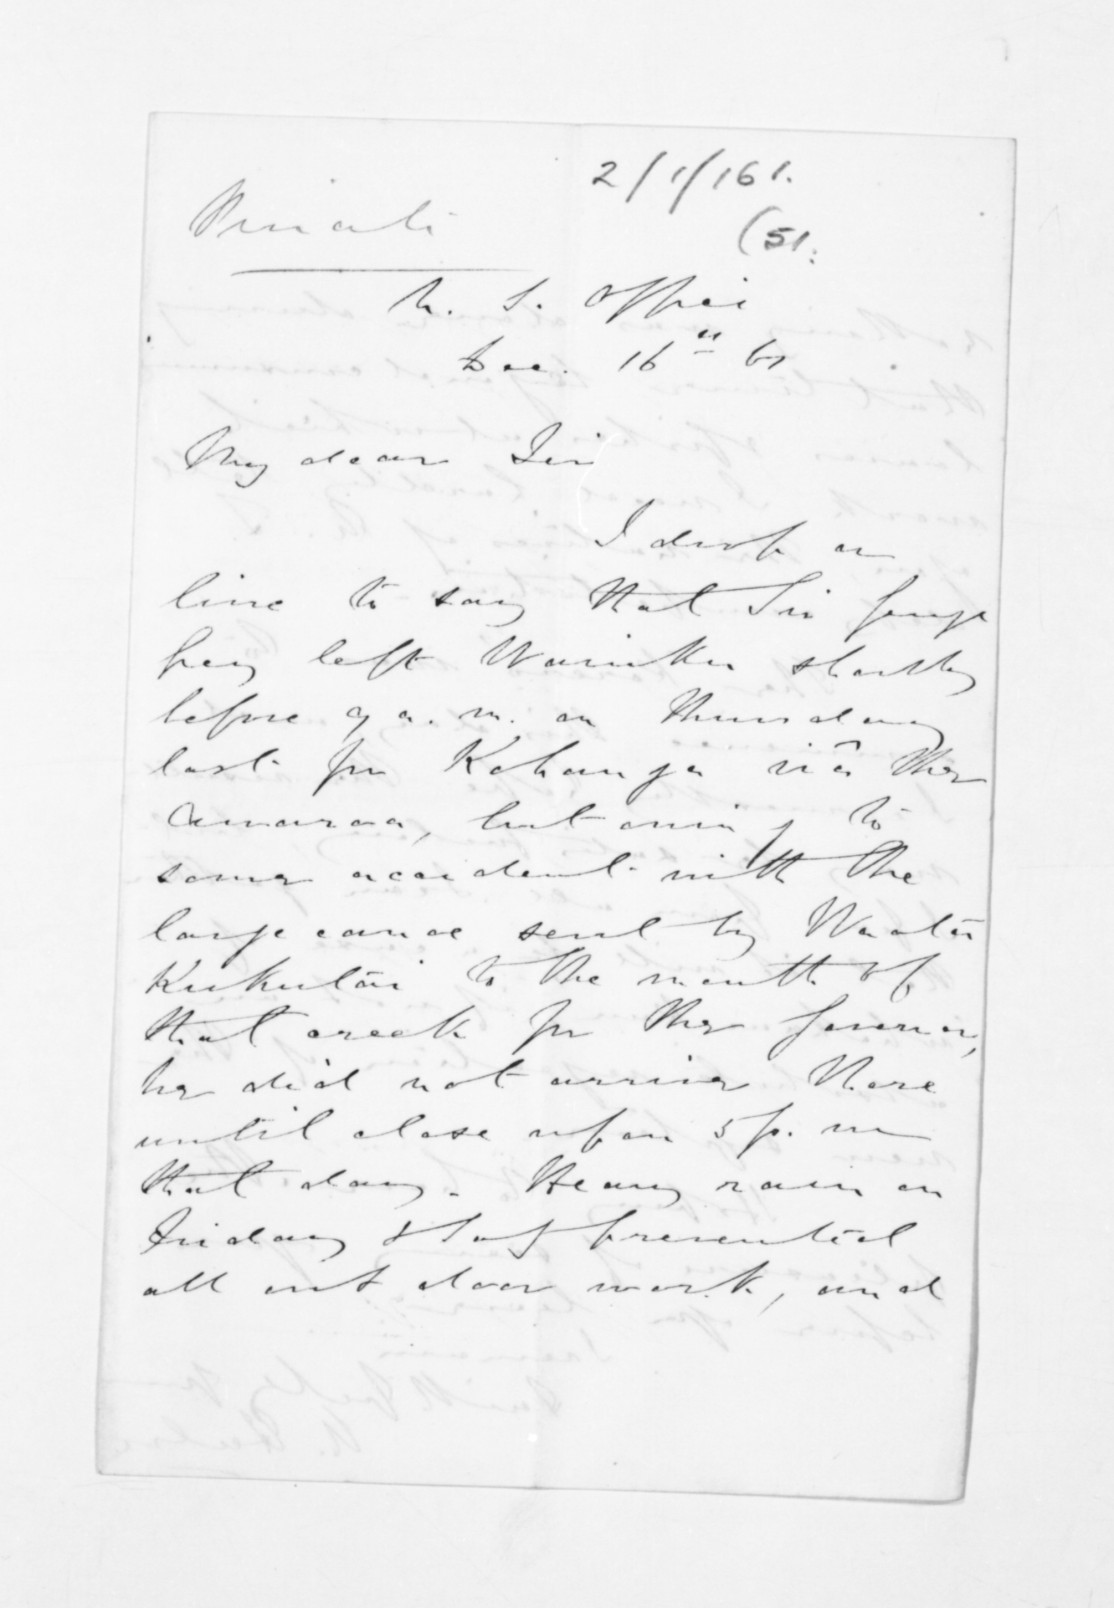 2/1/161.
(51.
Private
N. S. Office
Dec. 16th 61
My dear Sir
I drop a
line to say that Sir George
Grey left Waiuku shortly
before 9 a. m. on Thursday
last for Kohanga viâ the
Awaroa, but owing to
some accident with the
large canoe sent by Waata
Kukutai to the mouth of
that creek for the Governor,
he did not arrive there
until close upon 5 p. m
that day. Heavy rain on
Friday & Sat prevented
all out door work, and